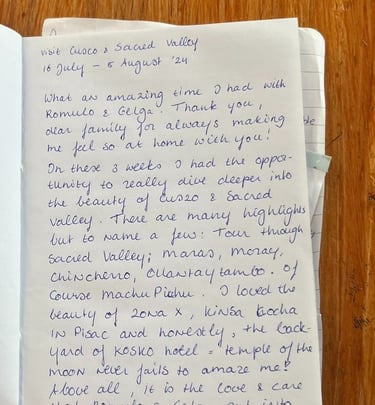 visit Cusco & Sacred Valley
16 July – 5 August '24
What an amazing time I had with
Romulo & Gelga. Thank you,
dear family for always making
me feel so at home with you!
In these 3 weeks I had the oppor-
tunity to really dive deeper into
the beauty of Cuszo & Sacred
Valley. There are many highlights
but to name a few: Tour through
Sacred Valley; Maras, Moray,
Chinchero, Ollantaytambo. Of
Course Machu Pichu. I loved the
beauty of Zona X, Kinsa Cocha
in Pisac and honestly, the back-
yard of Kosko hotel = temple of the
moon never fails to amaze me!
Above all, it is the love & care